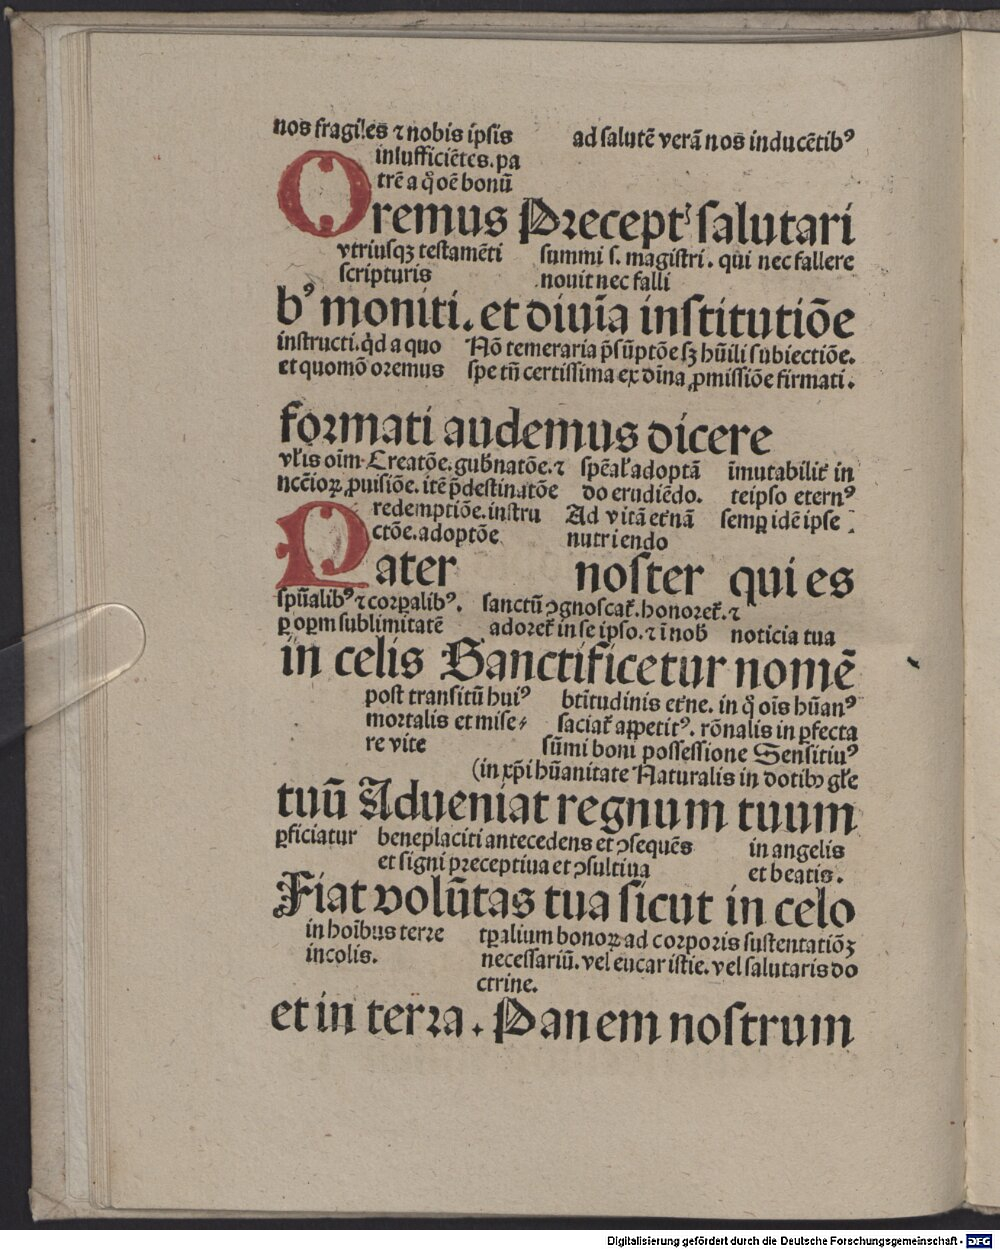 nos fragiles ⁊ nobis ipsis ad salutē verā nos inducētibꝰ
insufficiētes. pa
trē a q̊ oē bonū
Oremus Precept' salutari
vtriusqꝫ testamēti summi s. magistri. qui nec fallere
scripturis nouit nec falli
bꝰ moniti. et diuīa institutiōe
instructi. q̊d a quo Nō temeraria p̄sūptōe sꝫ hūili subiectiōe.
et quomō oremus spe tn̄ certissima ex dīna ꝓmissiōe firmati.
formati audemus dicere
vl̓is oīm Creatōe. gub̓natōe. ⁊ spēal̓ adoptā īmutabilit̓ in
ncēioꝝ ꝓuisiōe. itē p̄destinatōe do erudiēdo. teipso eternꝰ
redemptiōe. instru Ad vitā et̓nā semꝑ idē ipse
ctōe. adoptōe nutriendo
Pater noster qui es
spūalibꝰ ⁊ corꝑalibꝰ. sanctū ꝯgnoscat̓. honoret̓. ⁊
ꝑ oꝑm sublimitatē adoret̓ in se ipso. ⁊ ī nob̓ noticia tua
in celis Sanctificetur nomē
post transitū huiꝰ btītudinis et̓ne. in q̊ oīs hūanꝰ
mortalis et mise⸗ saciat̓ appetitꝰ. rōnalis in ꝑfecta
re vite sūmi boni possessione Sensitiuꝰ
(in xp̄i hūanitate Naturalis in dotibꝰ gl̓e
tuū Adueniat regnum tuum
ꝑficiatur beneplaciti antecedens et ꝯsequēs in angelis
et signi preceptiua et ꝯsultiua et beatis.
Fiat volūtas tua sicut in celo
in hoībus terre tꝑalium bonoꝝ ad corporis sustentatiōꝫ
incolis. necessariū. vel eucaristie. vel salutaris do
ctrine.
et in terra. Panem nostrum
Digitalisierung gefördert durch die Deutsche Forschungsgemeinschaft - DFG